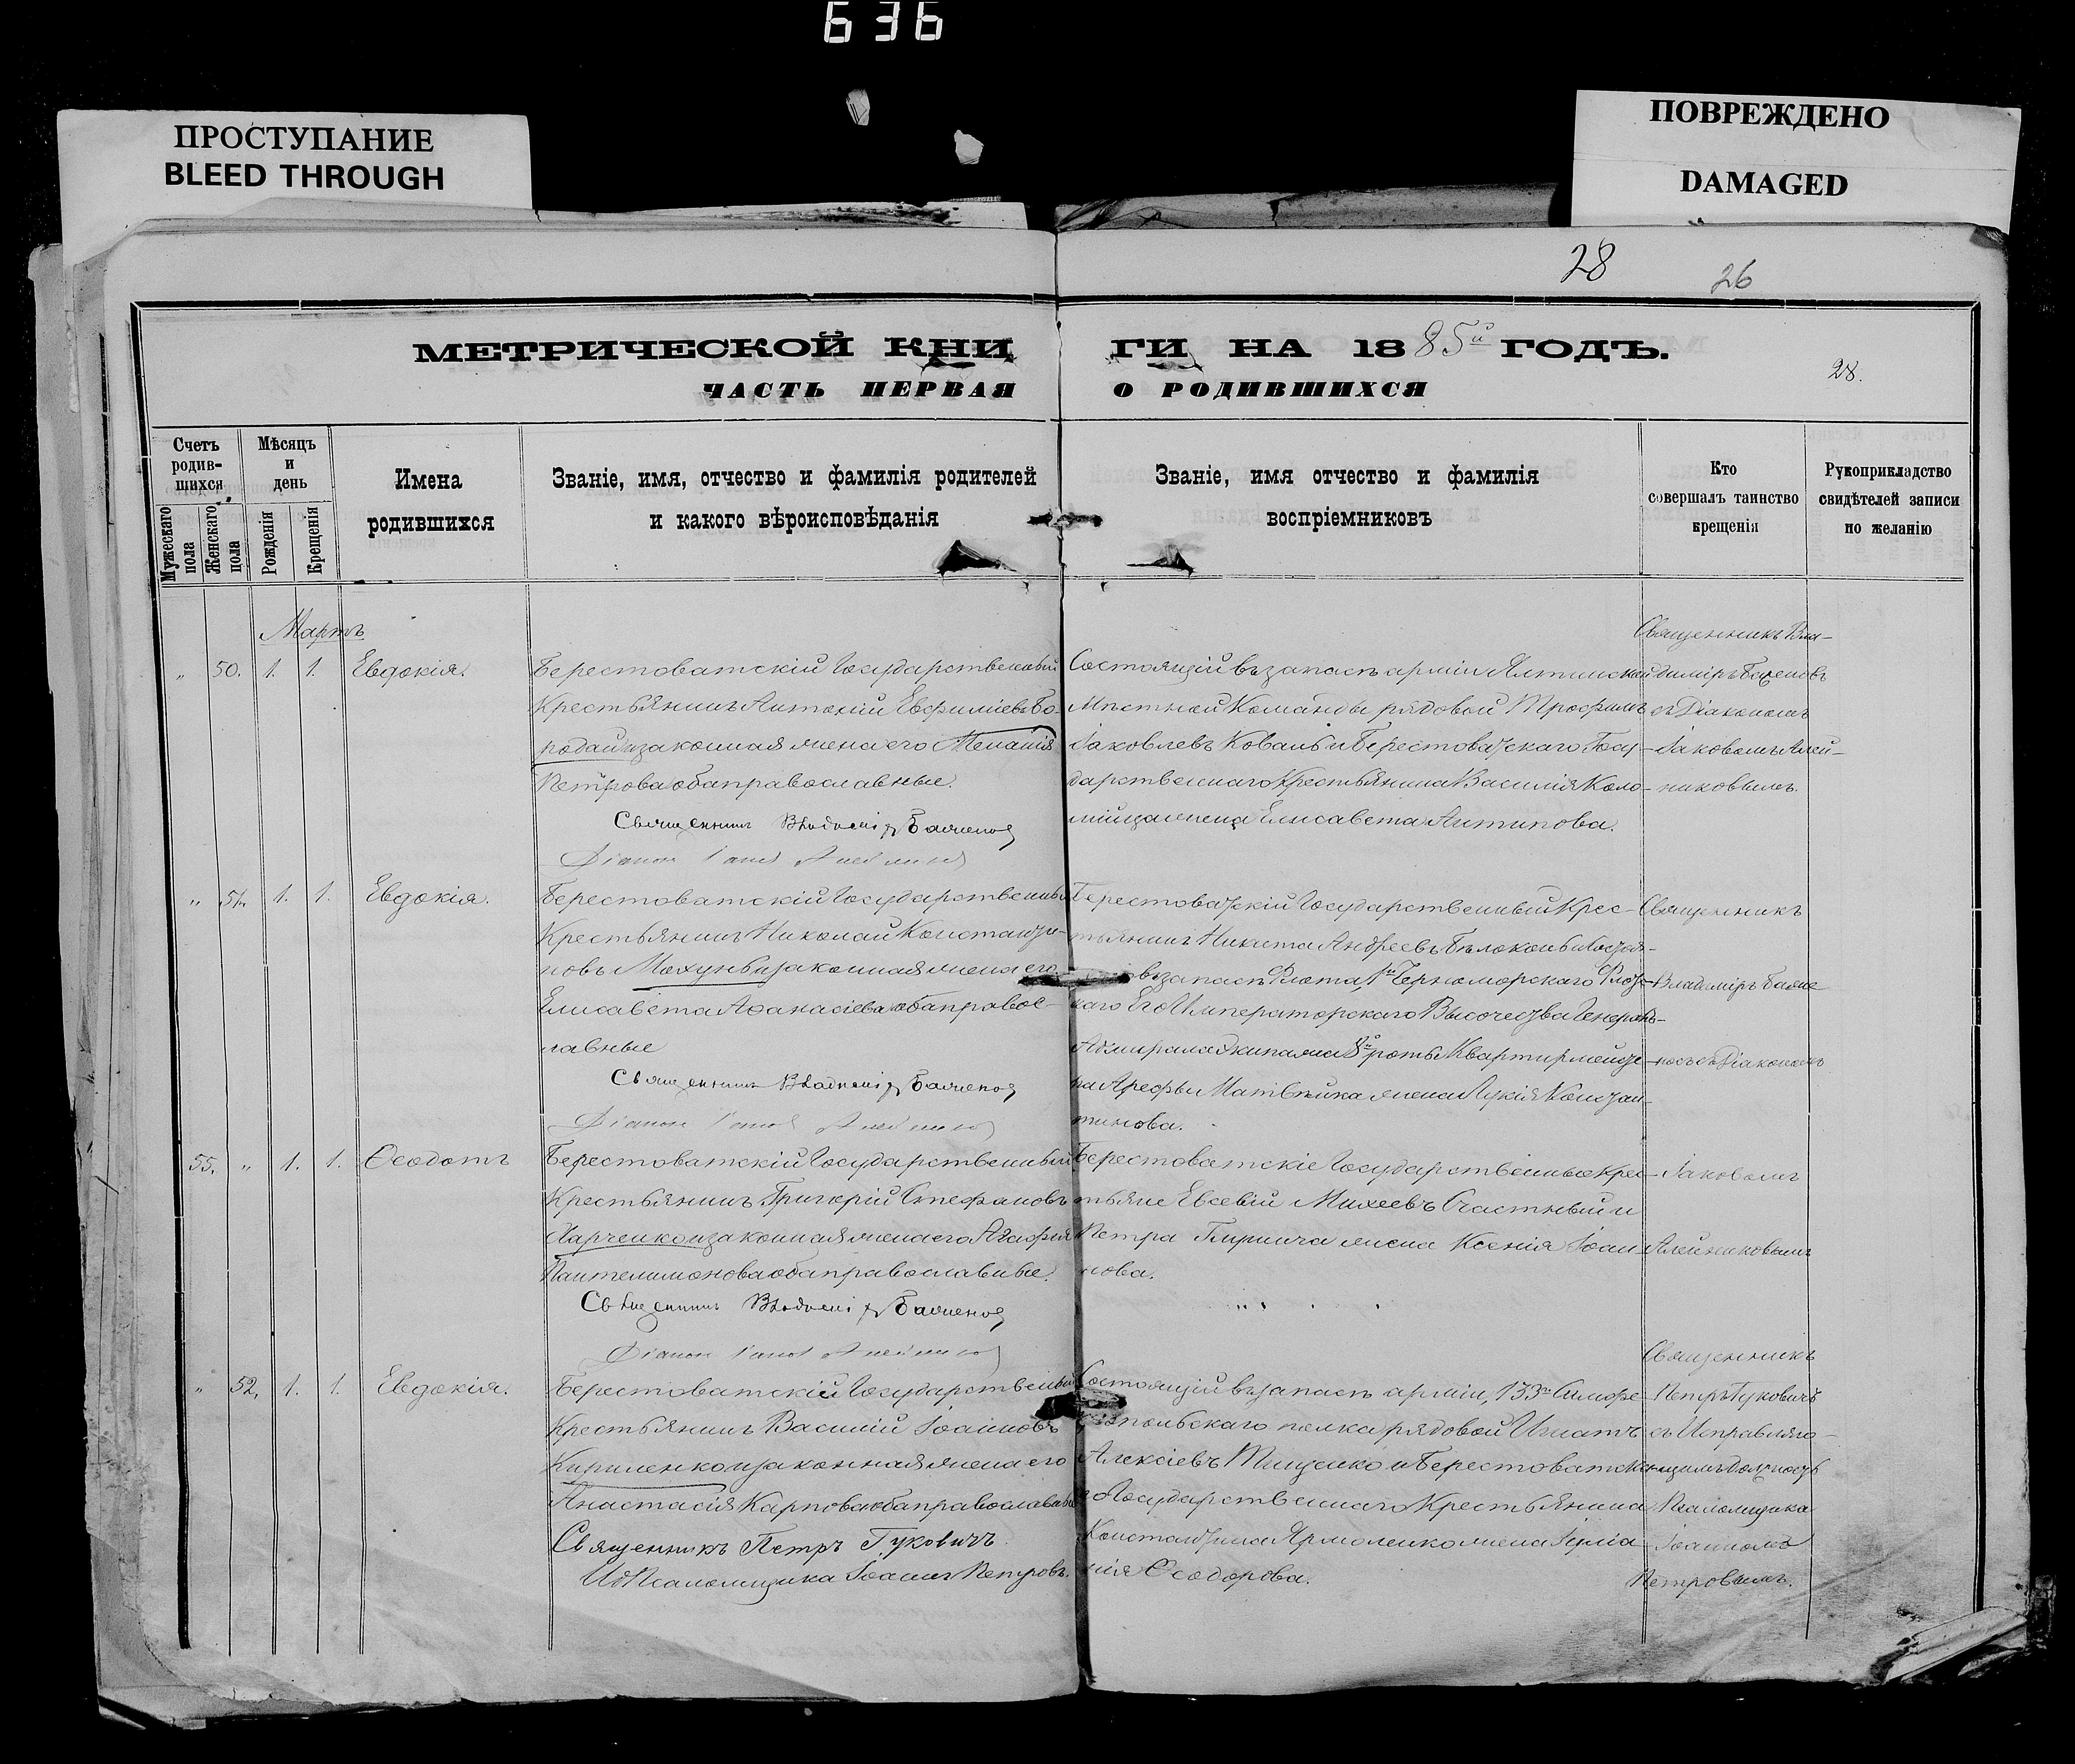 636
ПРОСТУПАНИЕ
BLEED THROUGH
ПОВРЕЖДЕНО
DAMAGED
28
26
МЕТРИЧЕСКОЙ КНИГИ НА 1885й ГОДЪ.
28.
ЧАСТЬ ПЕРВАЯ О РОДИВШИХСЯ
Счетъ родив-шихся
Мужескаго пола
Женскаго пола
Мѣсяцъ и день
Рожденія
Крещенія
Имена родившихся
Званіе, имя, отчество и фамилія родителей
и какого вѣроисповѣданія
Званіе, имя отчество и фамилія
воспріемниковъ
Кто
совершалъ таинство
крещенія
Рукоприкладство
свидѣтелей записи
по желанію
Мартъ
„ 50. 1. 1. Евдокія.
Берестоватскій Государственный
Крестьянинъ Антоній Евфиміевъ Бо-
родай и законная жена его Меланія
Петрова оба православные.
Священникъ Владиміръ Баженов
Діакон Алейников
Состоящій въ запасѣ арміи Ялтинской
Мѣстной Команды рядовой Трофимъ
Іаковлевъ Коваль и Берестоватскаго Госу-
дарственнаго Крестьянина Василія Коло-
мійца жена Елисавета Антипова.
Священникъ Вла-
диміръ Баженовъ
съ Діакономъ
Іаковомъ Алей-
никовымъ.
„ 51. 1. 1. Евдокія.
Берестоватскій Государственный
Крестьянинъ Николай Константи-
новъ Махунь и законная жена его
Елисавета Аѳанасіева оба правос-
лавные
Священникъ Владиміръ Баженов
Діакон Алейников
Берестоватскій Государственный Крес-
тьянинъ Никита Андреевъ Бѣлоконь и
въ запасѣ Флота, 1го Черноморскаго Флот-
скаго Его Императорскаго Высочества Генералъ-
Адмирала Экипажа 8й роты Квартирмейсте-
ра Арефы Матвѣйка жена Лукія Констан-
тинова.
Священникъ
Владиміръ Баже-
новъ съ Діакономъ
55. „ 1. 1. Ѳеодотъ
Берестоватскій Государственный
Крестьянинъ Григорій Стефановъ
Харченко и законная жена его Агафія
Пантелимонова оба православные.
Священникъ Владиміръ Баженов
Діакон Алейников
Берестоватскіе Государственные Крес-
тьяне Евсевій Михеевъ Счастный и
Петра жена Ксенія Іоан-
нова.
Іаковомъ
Алейниковымъ
„ 52. 1. 1. Евдокія.
Берестоватскій Государственный
Крестьянинъ Василій Іоанновъ
Кириленко и законная жена его
Анастасія Карпова оба православные
Священникъ Петръ Гуковичъ
ИдПсаломщика Іоаннъ Петровъ.
Состоящій въ запасѣ арміи, 133го Симфе-
ропольскаго полка рядовой Игнатъ
Алексіевъ Тищенко и Берестоватска-
го Государственнаго Крестьянина
Константина Ярмоленко жена Іуліа-
нія Ѳеодорова.
Священникъ
Петръ Гуковичъ
съ Исправляю-
щимъ должность
Псаломщика
Іоанномъ
Петровымъ.